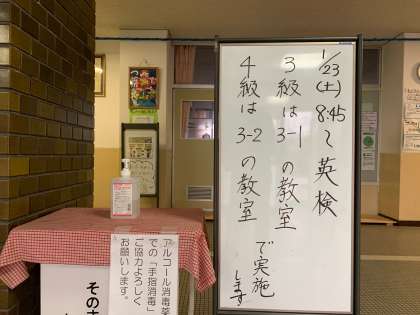 1/23(土) 8:45〜英検
3級は3-1の教室
4級は3-2の教室
で実施します
アルコール消毒
での「手指消毒」
ご協力よろしく
お願いします。